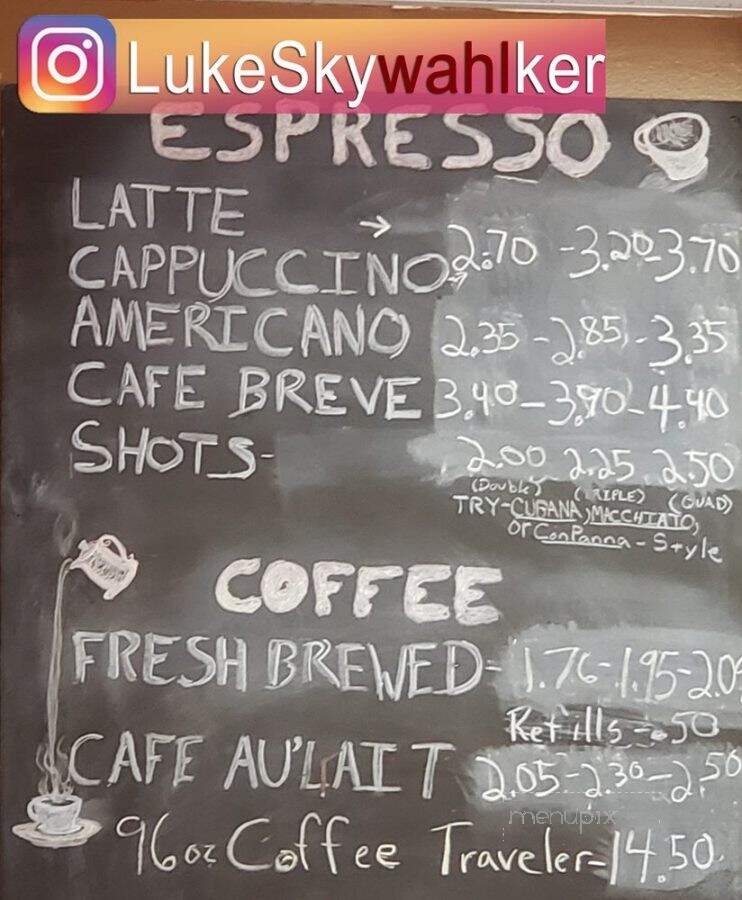 LukeSkywahlker
ESPRESSO
LATTE
→ 2.70 - 3.20 - 3.70
CAPPUCCINO→
AMERICANO 2.35 - 2.85 - 3.35
CAFE BREVE 3.40 - 3.90 - 4.40
SHOTS- 2.00 2.25 2.50
(Double) (TRIPLE) (QUAD)
TRY-CUBANA, MACCHIATO,
or ConPanna - Style
COFFEE
FRESH BREWED- 1.76 - 1.95 - 2.0
Refills - .50
CAFE AU'LAIT 2.05 - 2.30 - 2.50
menupix
96oz Coffee Traveler - 14.50